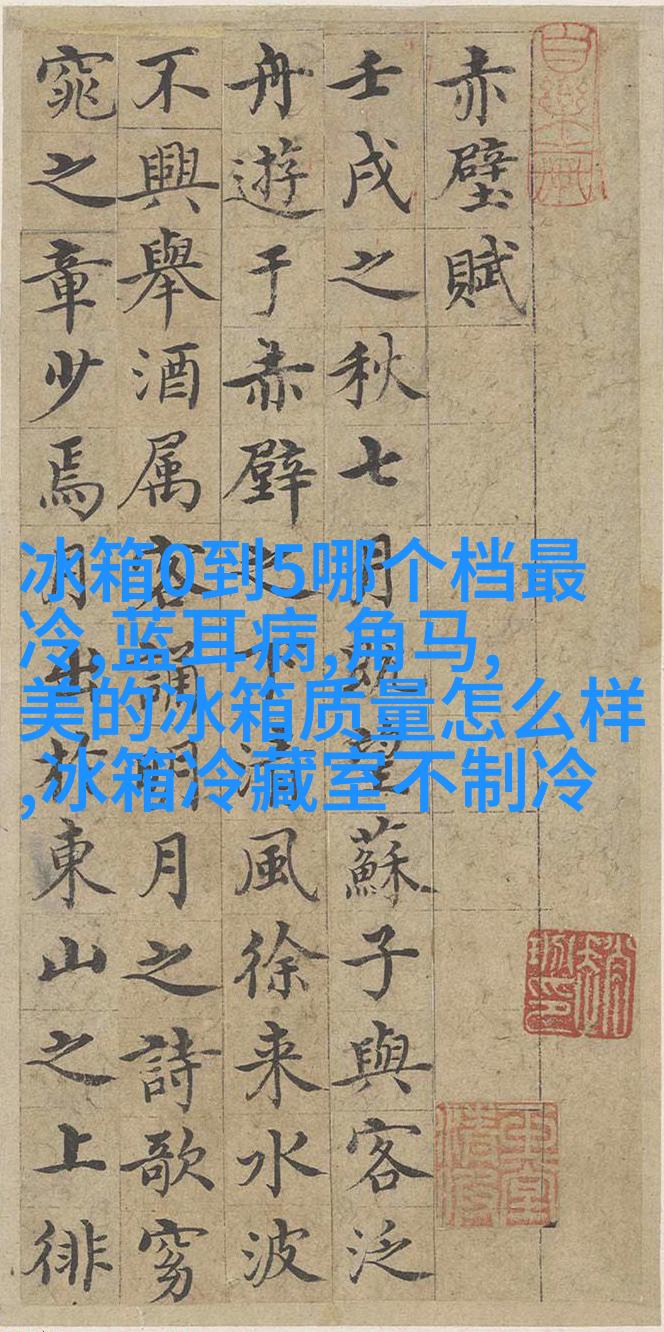 赤壁賦
壬戌之秋七月既望蘇子與客泛
舟遊于赤壁之下清風徐来水波
不興舉酒属客誦明月之詩歌窈
窕之章少焉月出於東山之上徘
冰箱0到5哪个档最
冷,蓝耳病,角马,
美的冰箱质量怎么样
,冰箱冷藏室不制冷